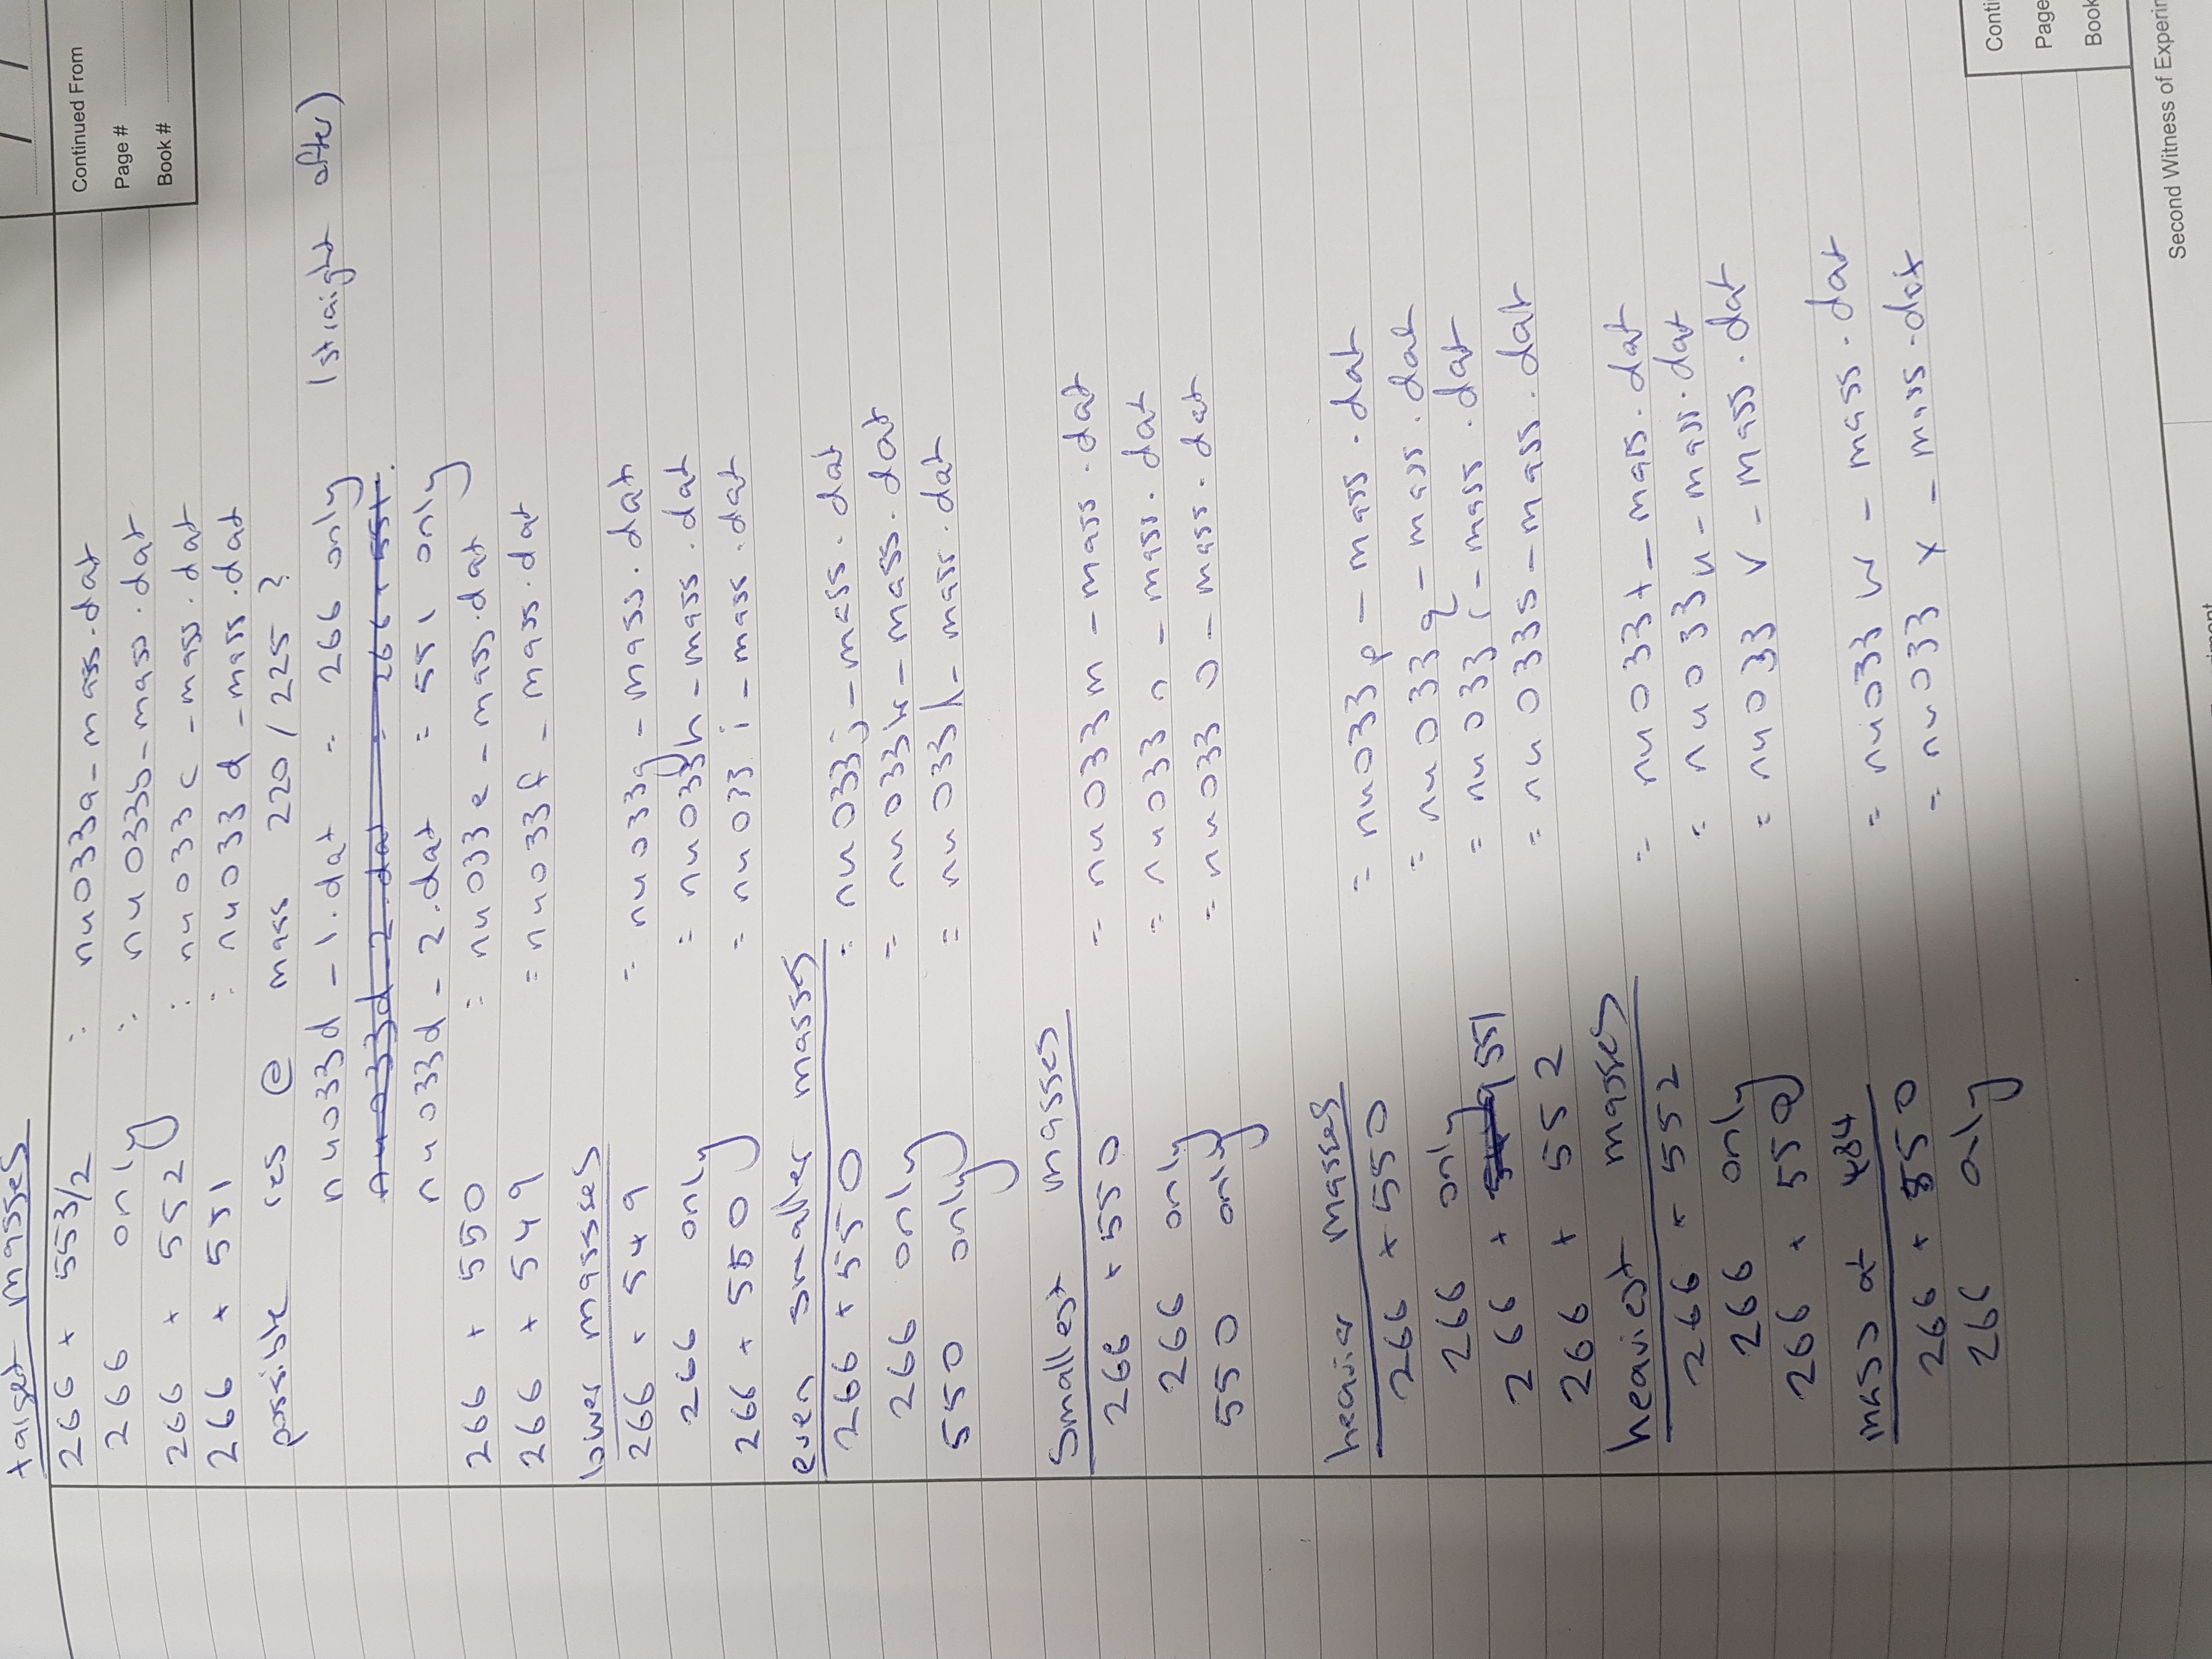 target masses
/ /
Continued From
Page #
Book #
266 + 553/2 : nu033a-mass.dat
266 only : nu033b-mass.dat
266 + 552 : nu033c-mass.dat
266 + 551 : nu033d-mass.dat
possible res @ mass 220/225?
nu033d-1.dat = 266 only (straight after)
nu033d-2.dat = 266 + 551.
nu033d-2.dat = 551 only
266 + 550 = nu033e-mass.dat
266 + 549 = nu033f-mass.dat
lower massses
266 + 549 = nu033g-mass.dat
266 only = nu033h-mass.dat
266 + 550 = nu033i-mass.dat
even smaller masses
266 + 550 = nu033j-mass.dat
266 only = nu033k-mass.dat
550 only = nu033l-mass.dat
Smallest masses
266 + 550 = nu033m-mass.dat
266 only = nu033n-mass.dat
550 only = nu033o-mass.dat
heavier masses
266 + 550 = nu033p-mass.dat
266 only = nu033q-mass.dat
266 + 549 551 = nu033r-mass.dat
266 + 552 = nu033s-mass.dat
heaviest masses
266 + 552 = nu033t-mass.dat
266 only = nu033u-mass.dat
266 + 550 = nu033v-mass.dat
mass at 484
266 + 550 = nu033w-mass.dat
266 only = nu033x-mass.dat
Conti
Page
Book
Second Witness of Experim